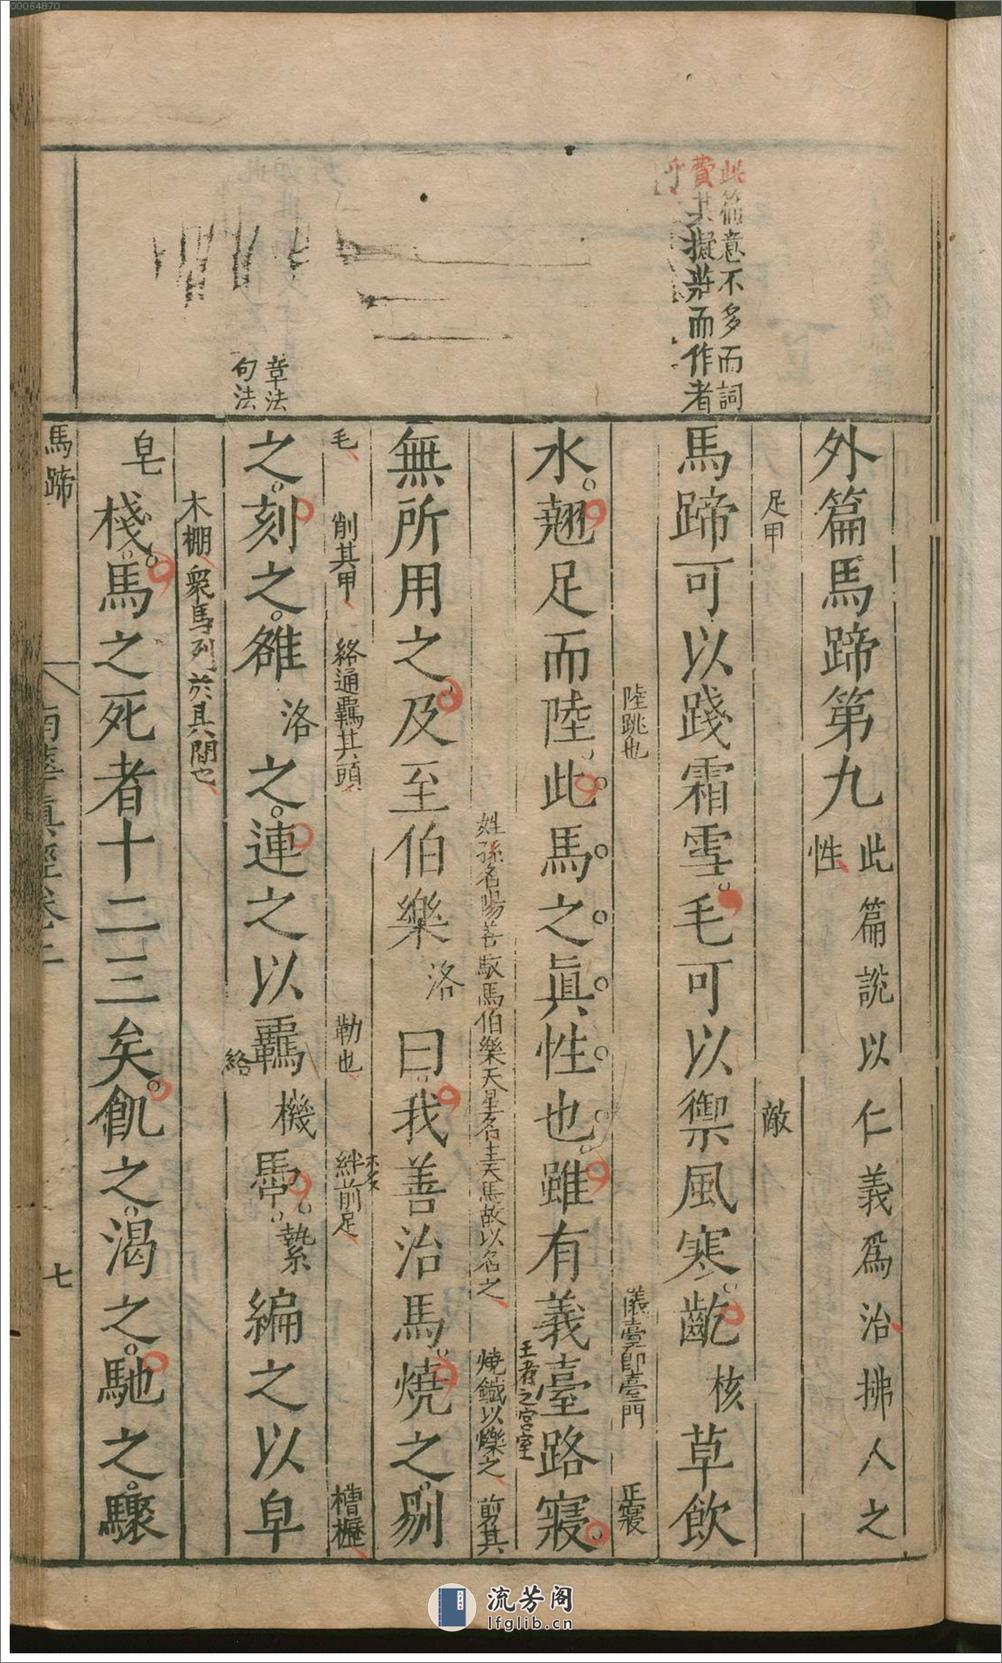 00064870
此篇意不多而詞
費其擬莊而作者
乎
章法
句法
外篇馬蹄第九 此篇說以仁義爲治拂人之
性
足甲
敵
馬蹄可以踐霜雪毛可以禦風寒齕核草飲
陸跳也
儀臺即臺門
正寢
水翹足而陸此馬之眞性也雖有義臺路寢
王者之宮室
姓孫名陽善馭馬伯樂天星名主天馬故以名之
燒鐵以爍之
剪其
無所用之及至伯樂洛曰我善治馬燒之剔
毛
削其甲
絡通羈其頭
勒也
絆前足
槽櫪
之刻之雒洛之連之以羈機馽縶編之以皁
絡
木棚
衆馬列於其間也
皂
棧馬之死者十二三矣飢之渴之馳之驟
馬蹄
南華眞經卷二
七
流芳阁
lfglib.cn